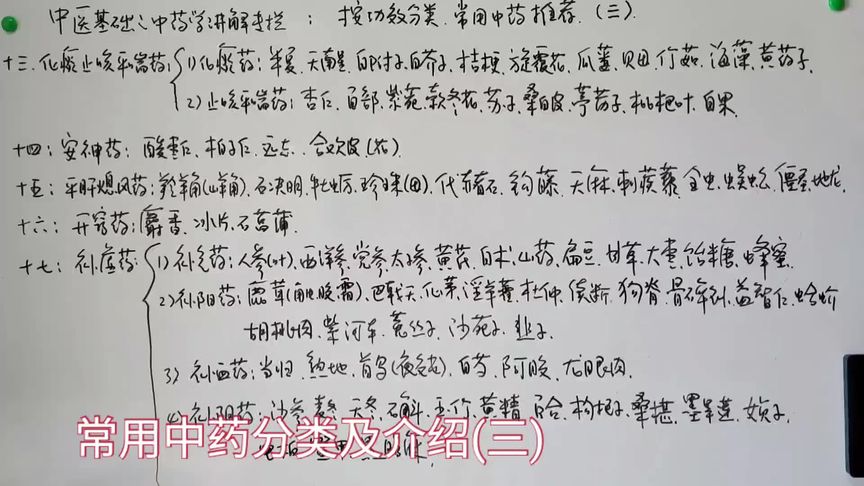 中医基础、中药学讲解专栏：按功效分类、常用中药推荐.(三).
十三.化痰止咳平喘药:1)化痰药:半夏.天南星.白附子.白芥子.桔梗.旋覆花.瓜蒌.贝母.竹茹.海藻.黄药子.
2)止咳平喘药:杏仁.百部.紫苑.款冬花.苏子.桑白皮.葶苈子.枇杷叶.白果.
十四:安神药:酸枣仁.柏子仁.远志.合欢皮(花)
十五:平肝熄风药:羚羊角(山羊角).石决明.牡蛎.珍珠(母).代赭石.钩藤.天麻.刺蒺藜.全虫.蜈蚣.僵蚕.地龙.
十六:开窍药:麝香.冰片.石菖蒲.
十七:补虚药:1)补气药:人参(叶).西洋参.党参.太子参.黄芪.白术.山药.扁豆.甘草.大枣.饴糖.蜂蜜.
2)补阳药:鹿茸(角.胶.霜).巴戟天.仙茅.淫羊藿.杜仲.续断.狗脊.骨碎补.益智仁.蛤蚧
胡桃肉.紫河车.菟丝子.沙苑子.韭子.
3)补血药:当归.熟地.首乌(夜交花).白芍.阿胶.龙眼肉.
4)补阴药:沙参.麦冬.天冬.石斛.玉竹.黄精.百合.枸杞子.桑椹.墨旱莲.女贞子.
常用中药分类及介绍(三)